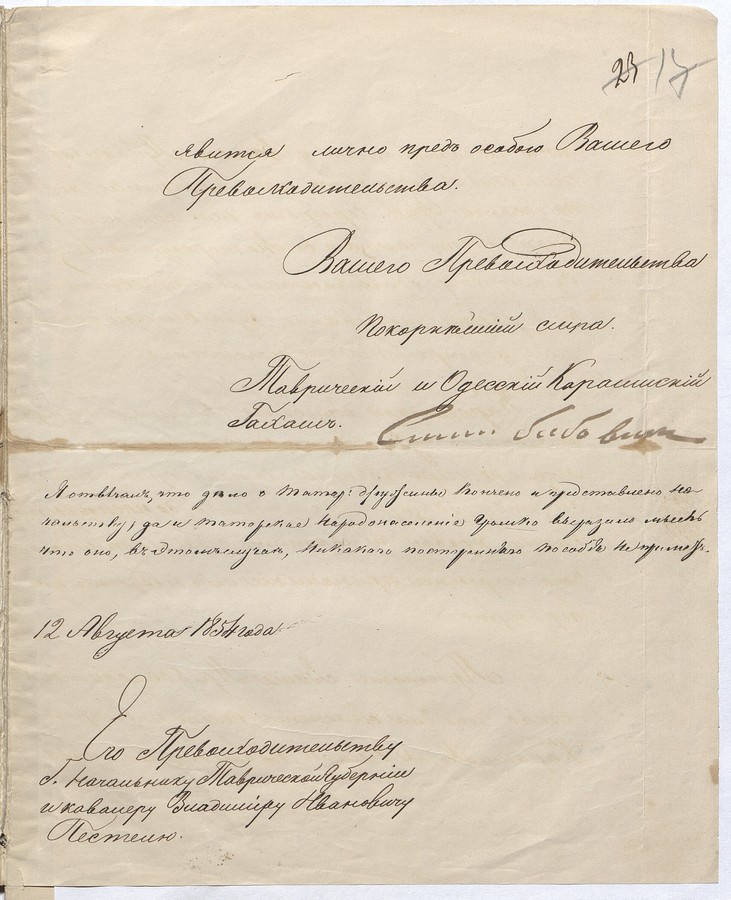 23 17
явится лично предъ особою Вашего
Превосходительства.
Вашего Превосходительства
покорнѣйшій слуга.
Таврическій и Одесскій Караимскій
Гахамъ.
Симхъ Бабовичъ
Я отвѣчалъ, что дѣло о татар: дружинѣ кончено и представлено на-
чальству, да и татарское народонаселеніе громко выразило мысль
что оно, въ этомъ случаѣ, никакого посторонняго пособія не приметъ.
12 Августа 1854 года
Его Превосходительству
Г. Начальнику Таврической Губерніи
и кавалеру Владиміру Ивановичу
Пестелю.